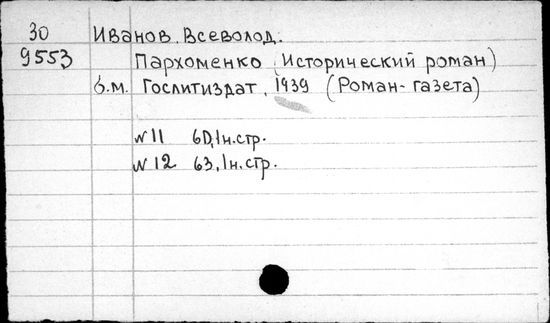 30 Иванов, Всеволод.
9553 Пархоменко (Исторический роман)
б.м. Гослитиздат, 1939 (Роман-газета)
№11 60,1н.стр.
№12 63,1н.стр.